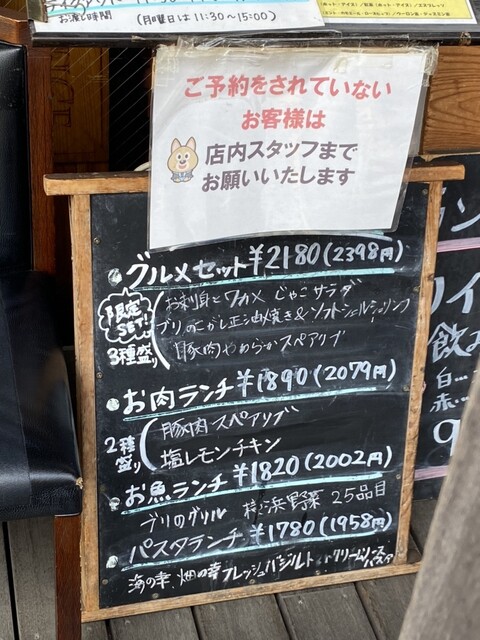 お渡し時間 (月曜日は11:30〜15:00)
ご予約をされていない
お客様は
店内スタッフまで
お願いいたします
グルメセット ¥2180(2398円)
限定SET!
3種盛り
お刺身とワカメ じゃこサラダ
ブリのこがし正油焼き&ソフトシェルシュリンプ
豚肉やわらかスペアリブ
お肉ランチ ¥1890(2079円)
2種盛り
豚肉スペアリブ
塩レモンチキン
お魚ランチ ¥1820(2002円)
ブリのグリル 横浜野菜 25品目
パスタランチ ¥1780(1958円)
海の幸、畑の幸 フレッシュバジルトマトクリームソースパスタ
飲み
白…
赤…